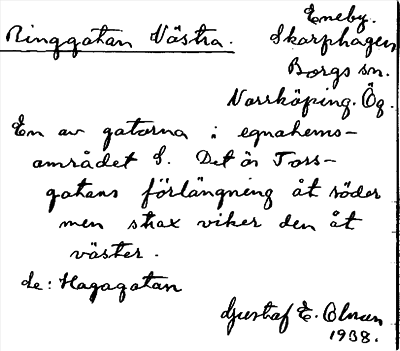 Eneby.
Ringgatan Västra. Skarphagen
Borgs sn.
Norrköping. Ög.
En av gatorna i egnahems-
området S. Det är Tors-
gatans förlängning åt söder
men strax viker den åt
väster.
de: Hagagatan
Gustaf E. Olman
1938.